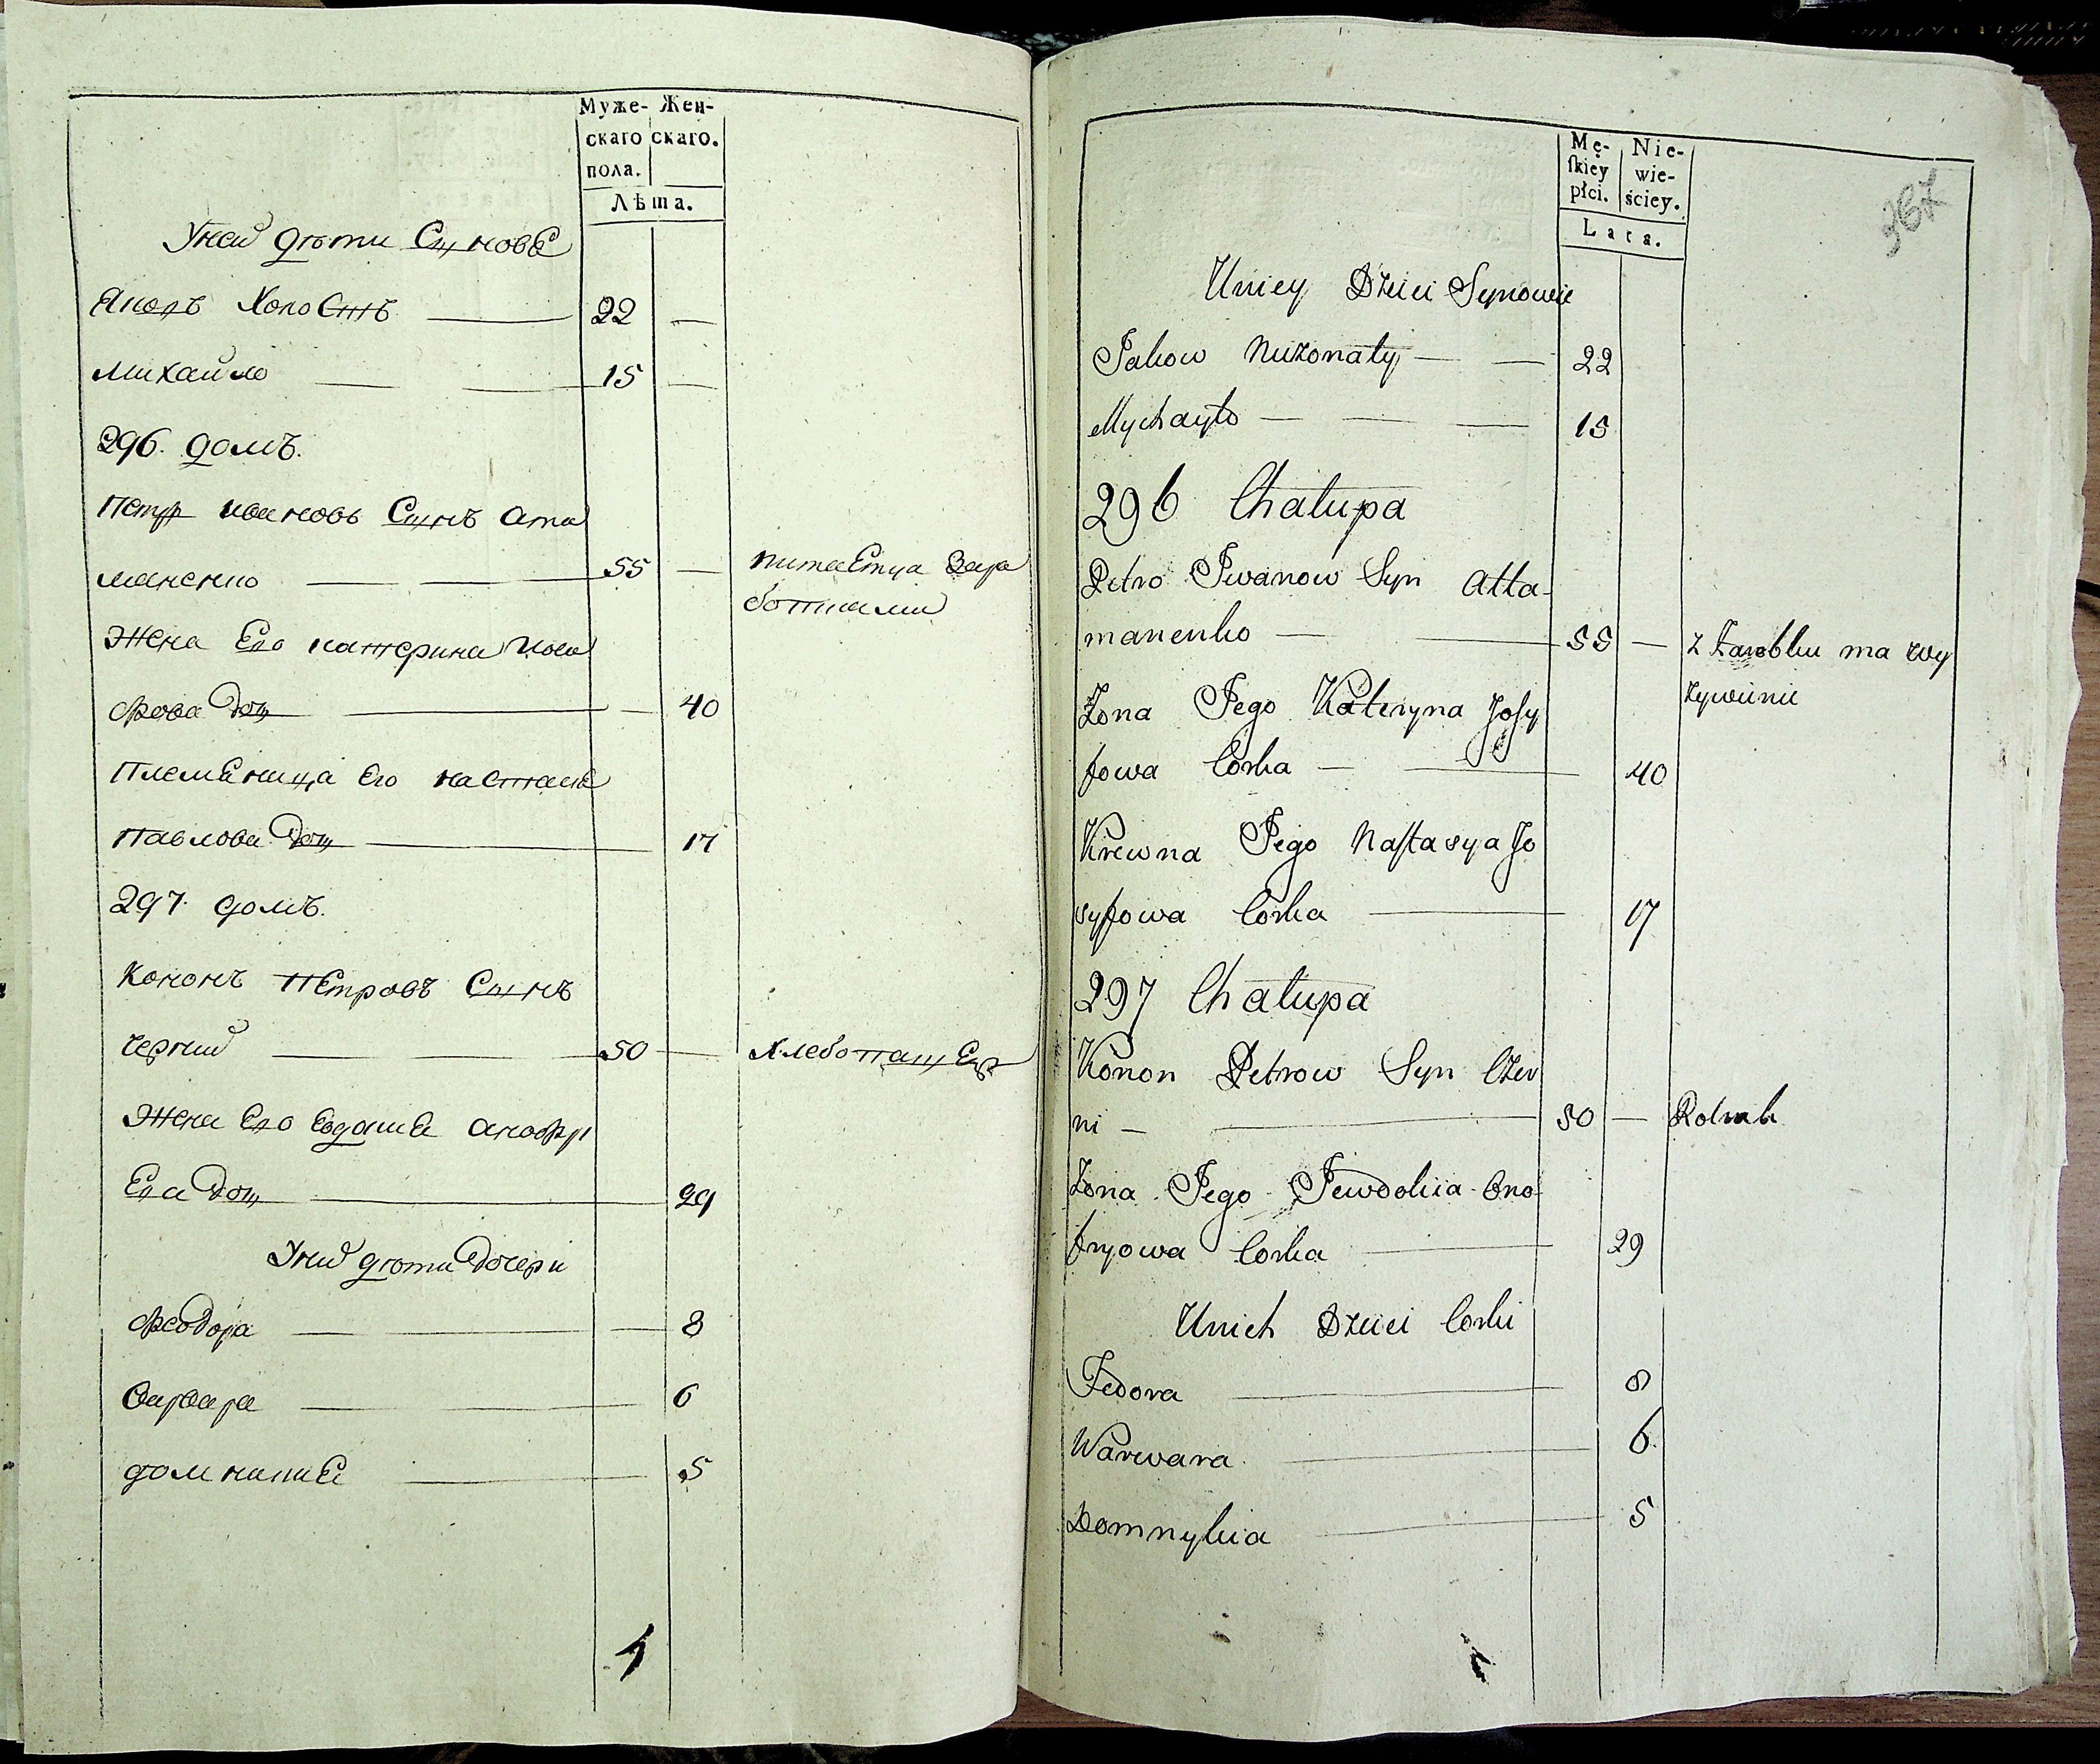 Муже- Жен-
скаго скаго.
пола.
Лѣта.
Унеи дѣти Сынове
Яковъ Холостъ 22 —
Михаило 15 —
296. домъ.
Петръ Ивановъ Сынъ Ата
маненко 55 — питаетца зара
ботками
Жена Его Катерина Иоси
фова Дощ — 40
Племеница Его Настасия
Павлова Дощ 17
297. домъ.
Кононъ Петровъ Сынъ
Черний 50 — Хлебопащецъ
Жена Его Евдокиа Анофри
Ева Дощ 29
Уних дѣти Дочери
Феодора — 8
Варвара 6
Домникиа 5
1
367
Mę- Nie-
ſkiey wie-
płci. ściey.
Lata.
Uniey Dzieci Synowie
Jakow Nieżonaty 22
Mychayło 15
296 Chałupa
Petro Jwanow Syn Atta-
manenko 55 — z Zarobku ma wy
żywienie
Żona Jego Kateryna Josy
fowa Corka 40
Krewna Jego Naſtasya Jo
syfowa Corka 17
297 Chałupa
Konon Petrow Syn Czer
ni — 50 — Rolnik
Żona Jego Jewdokia Ono-
fryowa Corka 29
Unich Dzieci Corki
Fedora 8
Warwara 6.
Domnykia 5